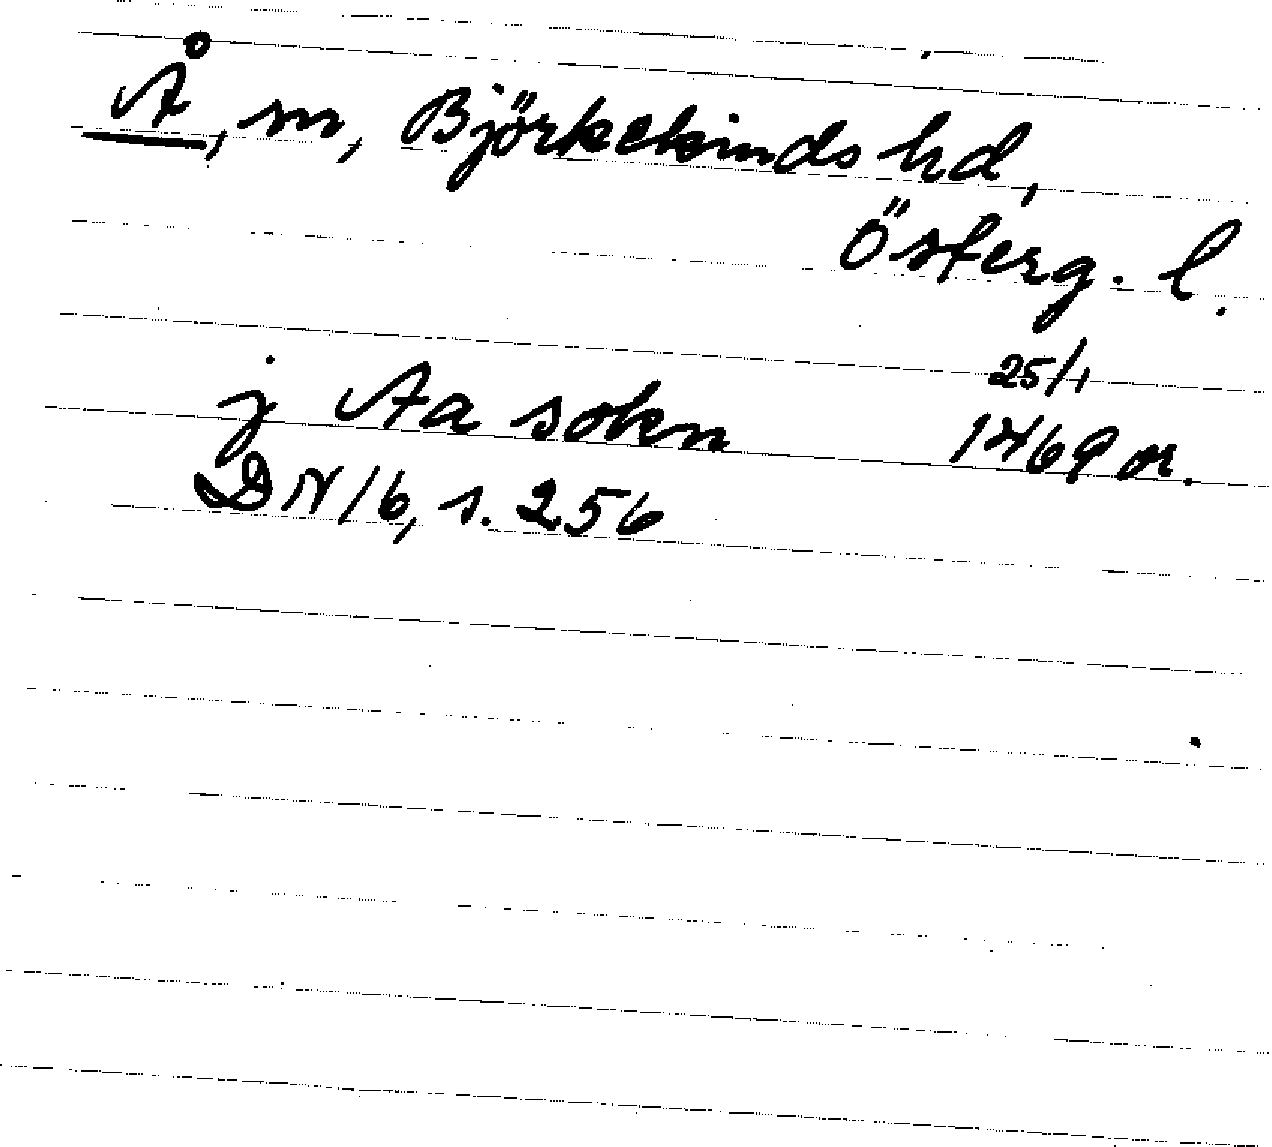 Å, sn, Björkekinds hd,
Österg. l.
j Aa sokn 25/1 1469 or.
DN 16, s. 256